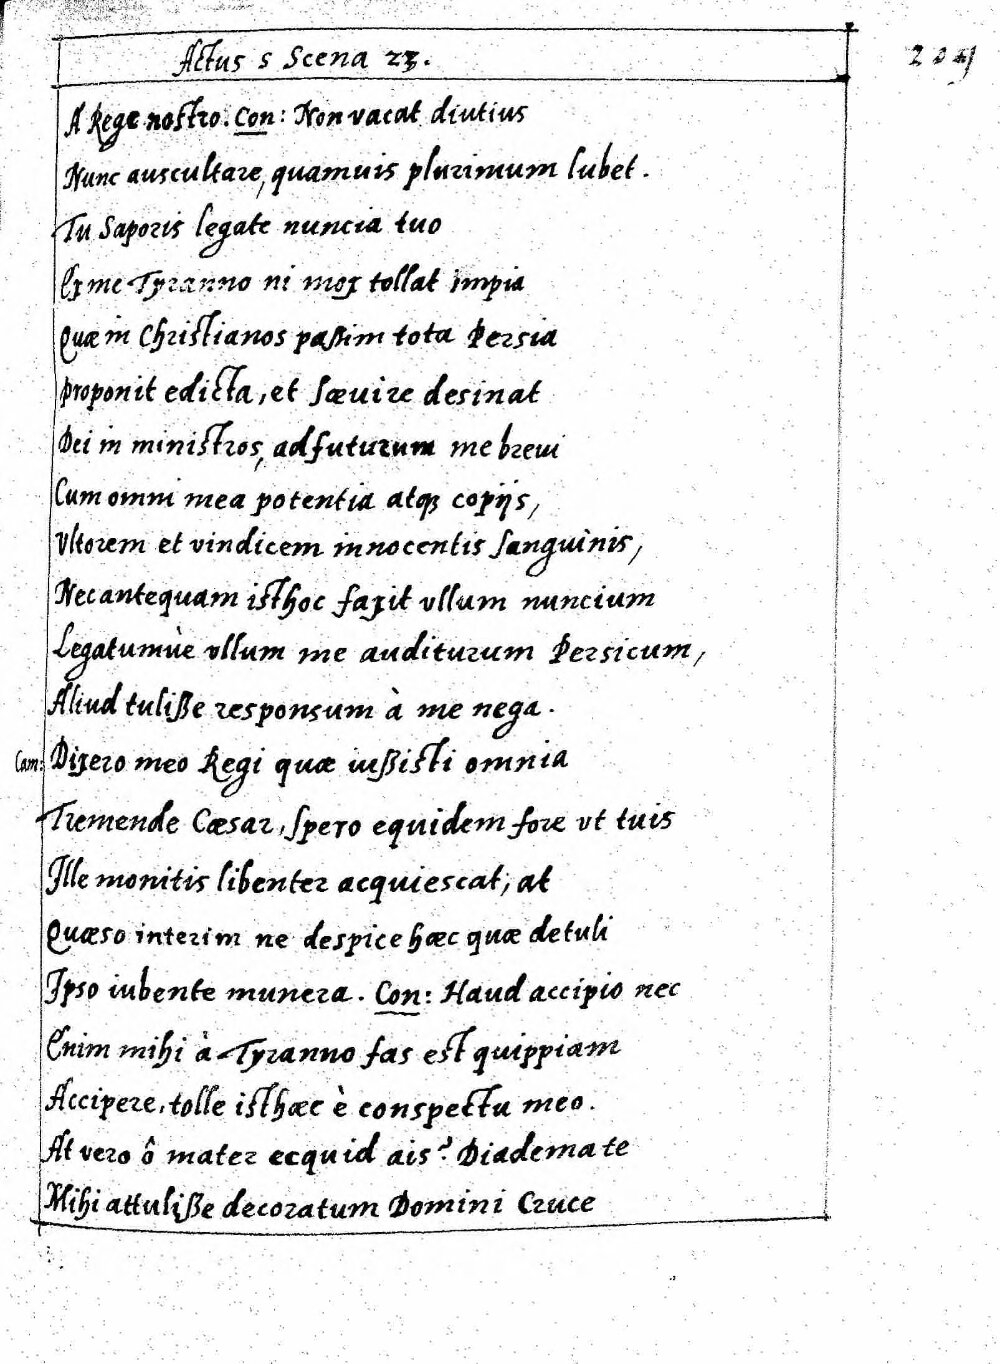 Actus 5 Scena 23.
A Rege nostro. Con: Non vacat diutius
Nunc auscultare, quamuis plurimum lubet.
Tu Saporis legate nuncia tuo
Ex me Tyranno ni mox tollat impia
Quæ in Christianos paßim tota Persia
Proponit edicta, et sæuire desinat
Dei in ministros, adfuturum me breui
Cum omni mea potentia atqꝫ copijs,
Vltorem et vindicem innocentis sanguìnis,
Nec antequam isthoc faxit vllum nuncium
Legatumùe vllum me auditurum Persicum,
Aliud tuliße responsum à me nega.
Cam: Dixero meo Regi quæ iußisti omnia
Tremende Cæsar, spero equidem fore vt tuis
Ille monitis libenter acquiescat, at
Quæso interim ne despice hæc quæ detuli
Ipso iubente munera. Con: Haud accipio nec
Enim mihi à Tyranno fas est quippiam
Accipere, tolle isthæc è conspectu meo.
At vero ô mater ecquid ais? Diademate
Mihi attuliße decoratum Domini Cruce